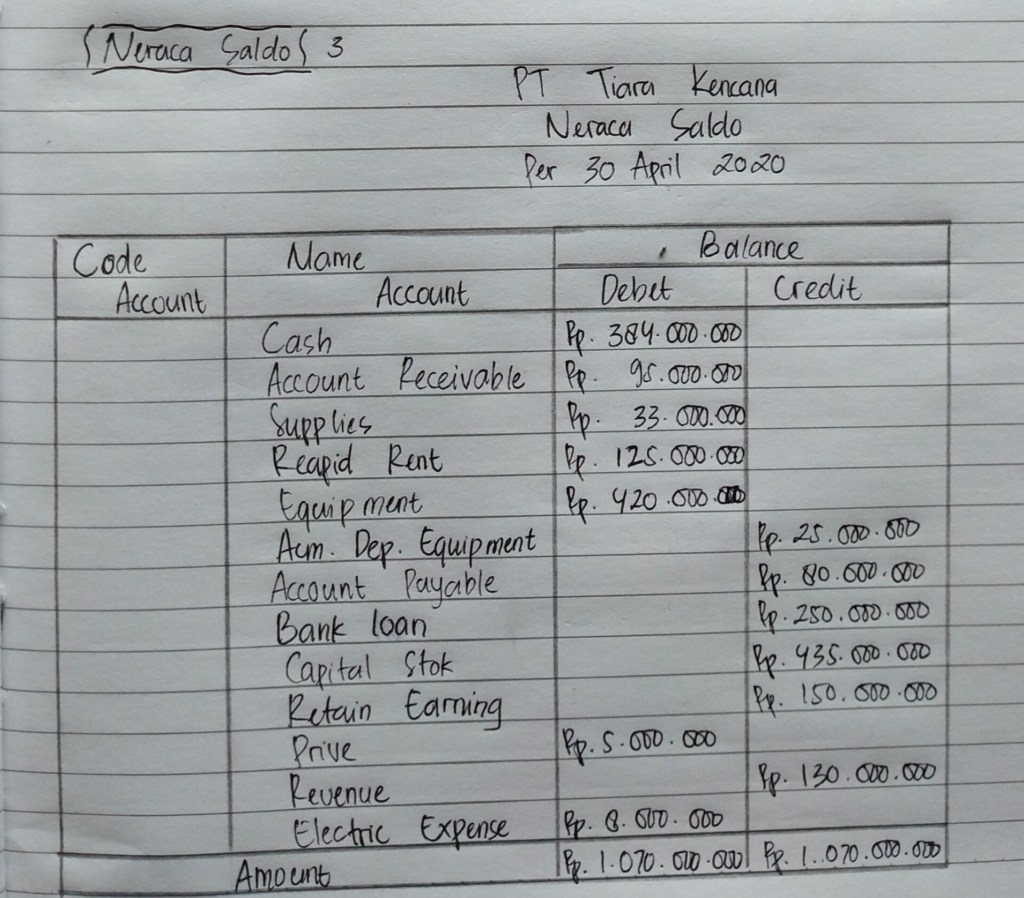 Neraca Saldo 3
PT Tiara Kencana
Neraca Saldo
Per 30 April 2020
Code Account Name Account Balance
Debet Credit
Cash Rp. 384.000.000
Account Receivable Rp. 95.000.000
Supplies Rp. 33.000.000
Reapid Rent Rp. 125.000.000
Equipment Rp. 420.000.000
Acm. Dep. Equipment Rp. 25.000.000
Account Payable Rp. 80.000.000
Bank loan Rp. 250.000.000
Capital Stok Rp. 435.000.000
Retain Earning Rp. 150.000.000
Prive Rp. 5.000.000
Revenue Rp. 130.000.000
Electric Expense Rp. 8.000.000
Amount Rp. 1.070.000.000 Rp. 1..070.000.000